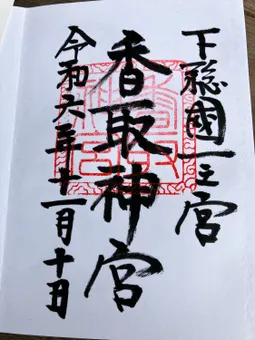 下総國一之宮
香取神宮
令和六年十一月十日